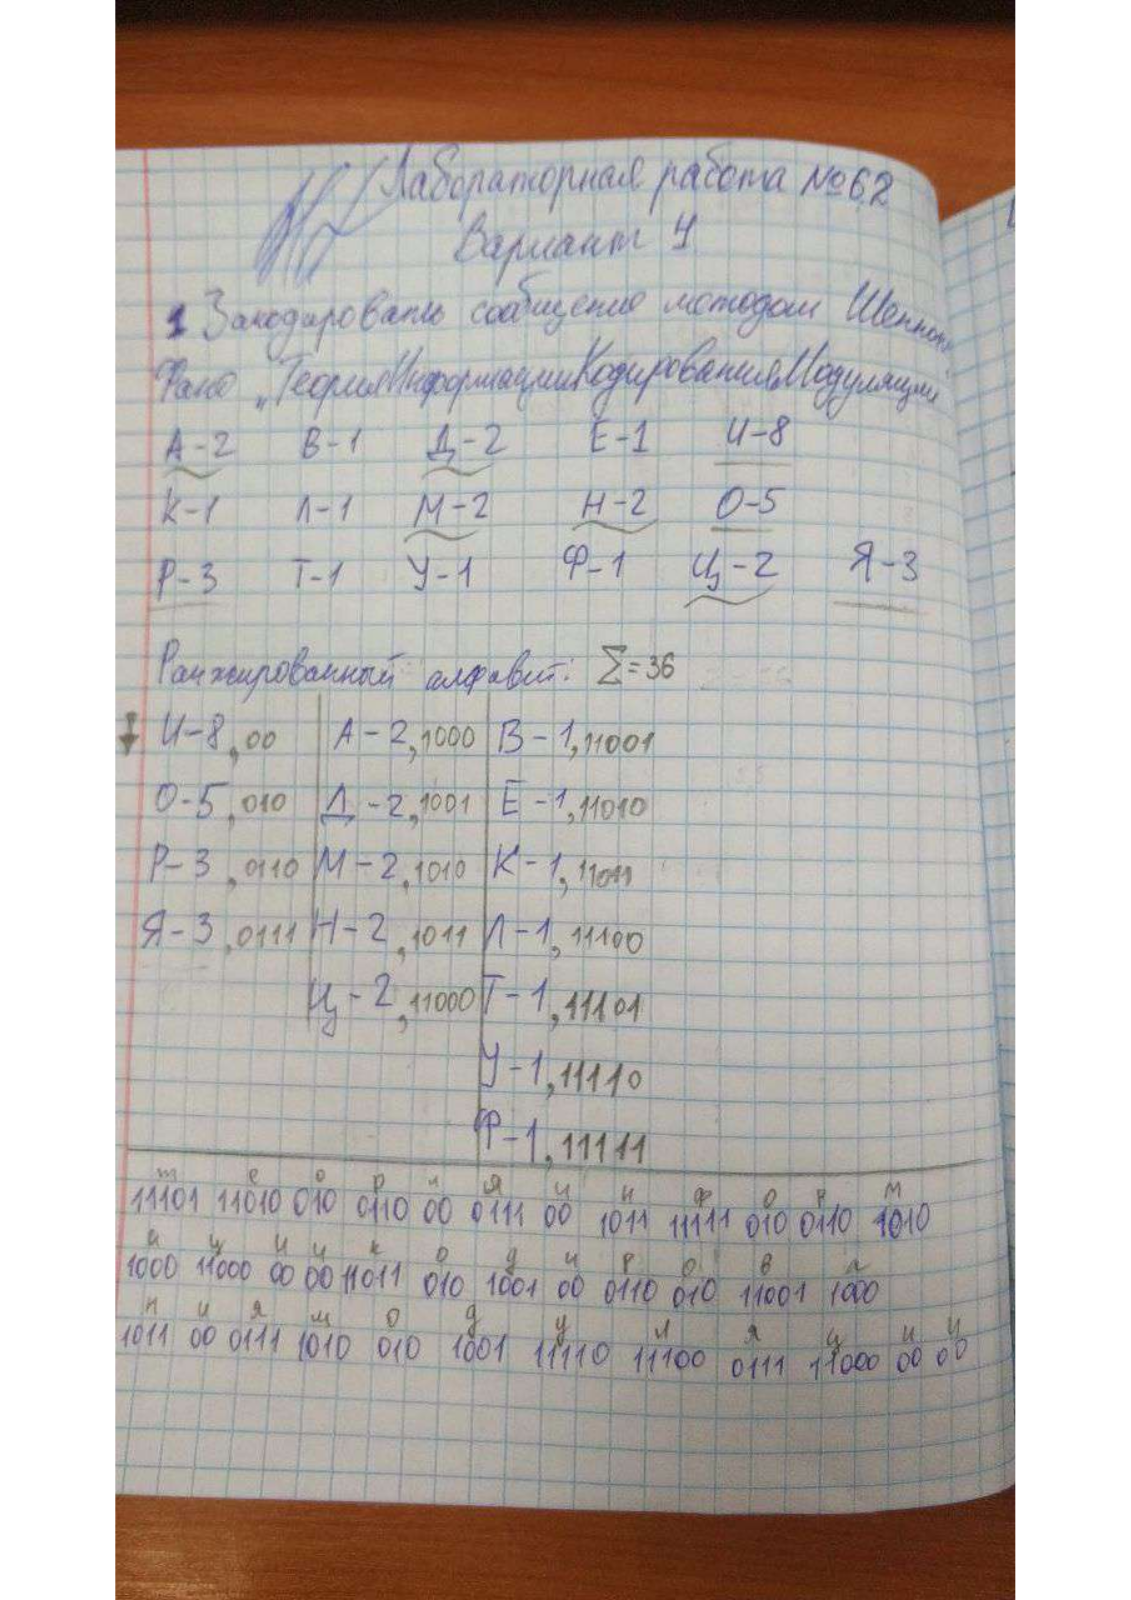 Лабораторная работа №6.2
Вариант 4
1 Закодировать сообщение методом Шеннона
Фано „ТеорияИнформацииКодированияМодуляции"
А-2 В-1 Д-2 Е-1 И-8
К-1 Л-1 М-2 Н-2 О-5
Р-3 Т-1 У-1 Ф-1 Ц-2 Я-3
Ранжированный алфавит: Σ=36
И-8,00 А-2,1000 В-1,11001
О-5,010 Д-2,1001 Е-1,11010
Р-3,0110 М-2,1010 К-1,11011
Я-3,0111 Н-2,1011 Л-1,11100
Ц-2,11000 Т-1,11101
У-1,11110
Ф-1,11111
т е о р и я и н ф о р м
11101 11010 010 0110 00 0111 00 1011 11111 010 0110 1010
а ц и и к о д и р о в а
1000 11000 00 00 11011 010 1001 00 0110 010 11001 1000
н и я м о д у л я ц и и
1011 00 0111 1010 010 1001 11110 11100 0111 11000 00 00